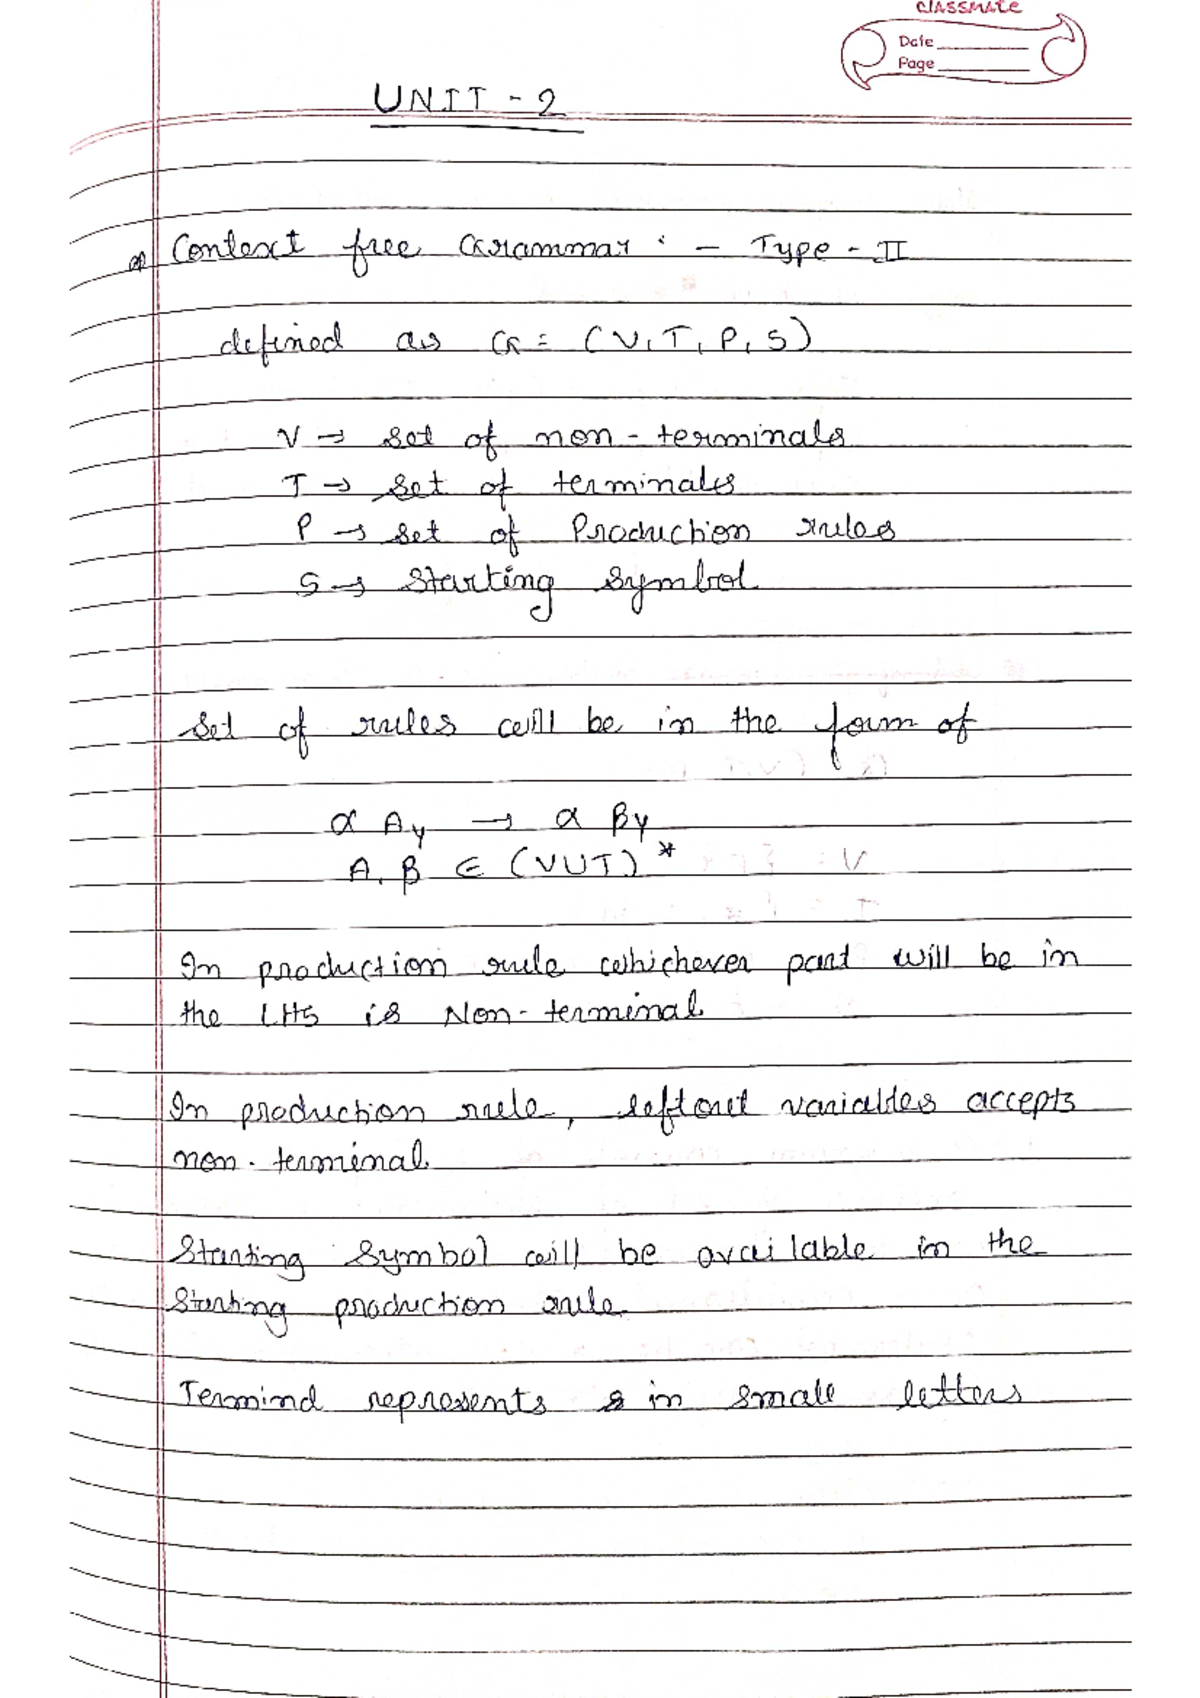 classmate
Date
Page
UNIT - 2
Context free Grammar : - Type - II
defined as G = (V, T, P, S)
V → set of non - terminals
T → set of terminals
P → set of Production rules
S → Starting symbol
Set of rules will be in the form of
α A γ → α β γ
A, β ∈ (V U T)*
In production rule whichever part will be in
the LHS is Non - terminal
In production rule, leftout variables accepts
non - terminal.
Starting symbol will be available in the
Starting production rule.
Terminal represents in small letters